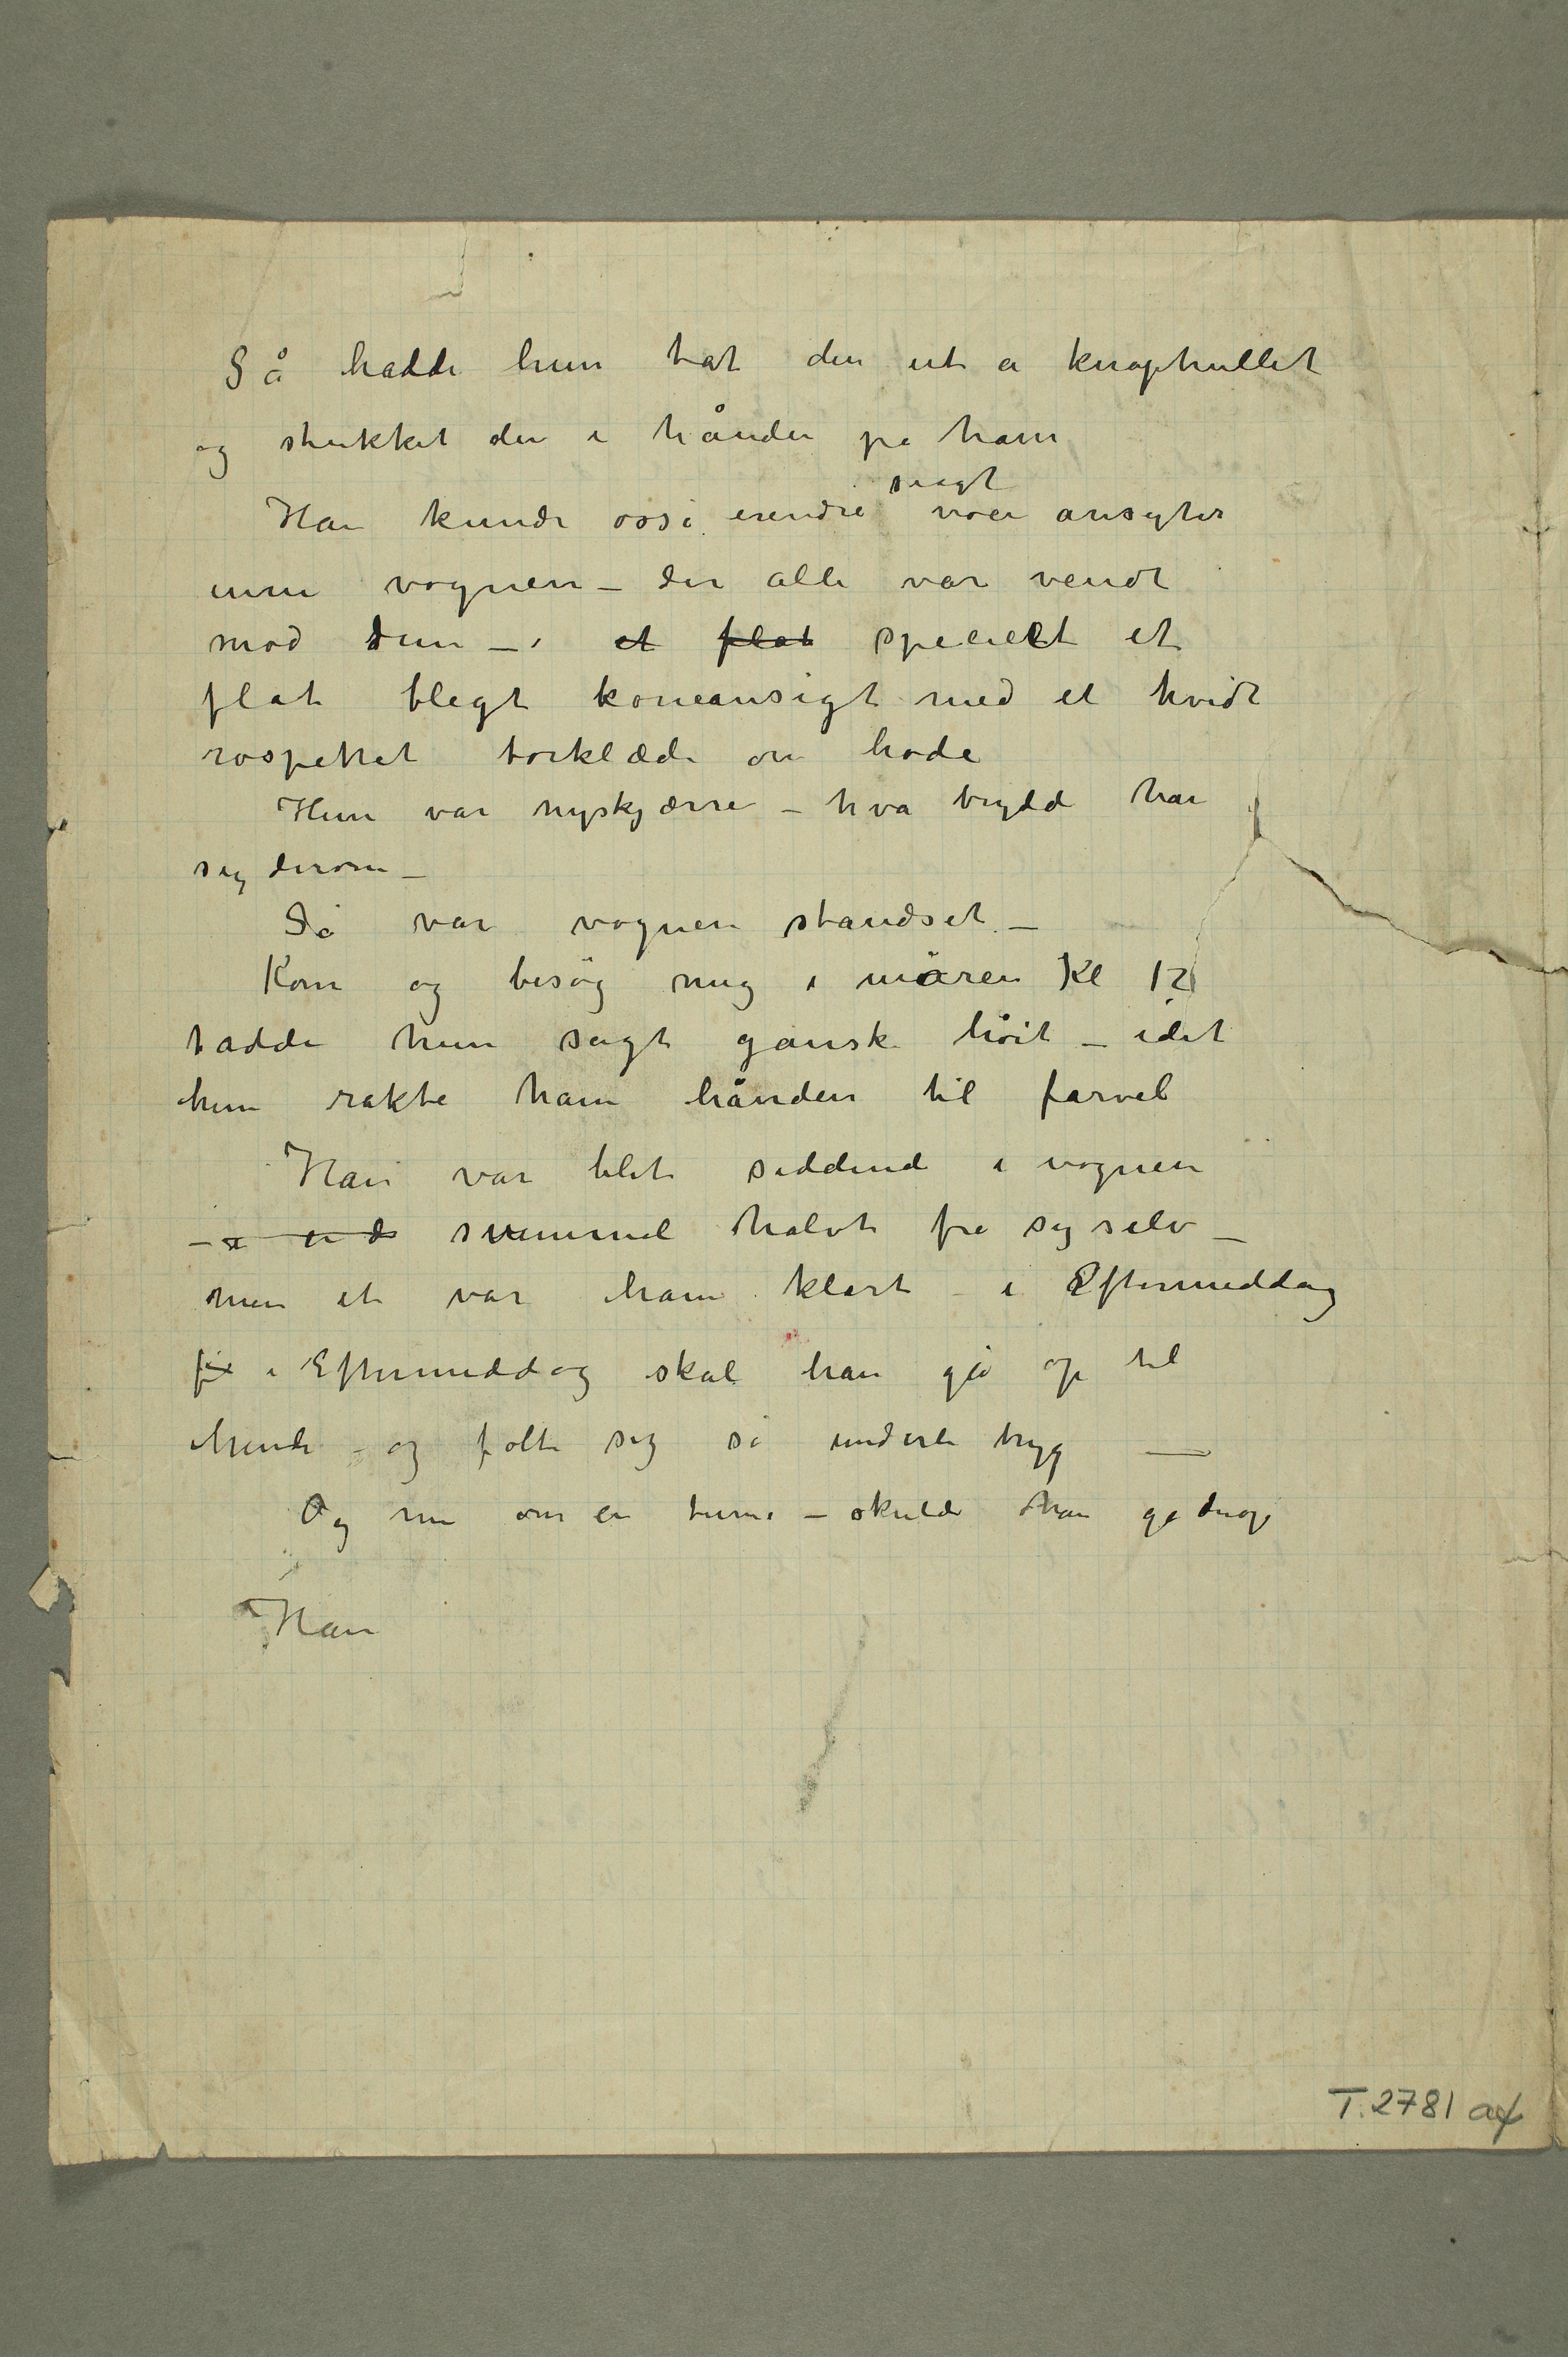 Så hadde hun tat den ut a knaphullet
og stukket den i hånden på ham
svagt
Han kunde osså erindre noen ansigter
inni vognen – der alle var vendt
mod dem – i et flat specielt et
flat blegt koneansigt med et hvidt
rospettet törklæde om hode
Hun var nyskjærre – hva brydd han
sig derom –
Så var vognen standset –
Kom og besög mig i måren Kl 12
hadde hun sagt gansk höit – idet
hun rakte ham hånden til farvel
Han var blit siddend i vognen
– svimmel halvt fra sig selv –
men et var ham klart – i Eftermiddag
i Eftermiddag skal han gå op til
hende – og fölte sig så underli tryg —
Og nu om en time – skulde han gå derop
Han
T. 2781 aχ